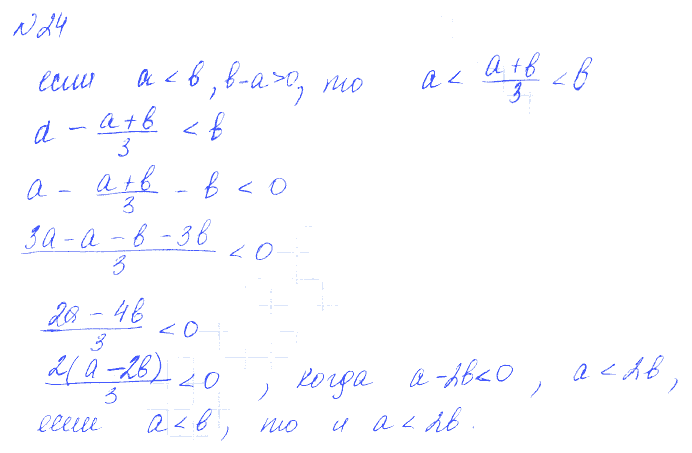 №24
если a < b, b-a>0, то a < (a+b)/3 < b
a - (a+b)/3 < b
a - (a+b)/3 - b < 0
(3a-a-b-3b)/3 < 0
(2a-4b)/3 < 0
2(a-2b)/3 < 0, когда a-2b<0, a<2b,
если a<b, то и a<2b.